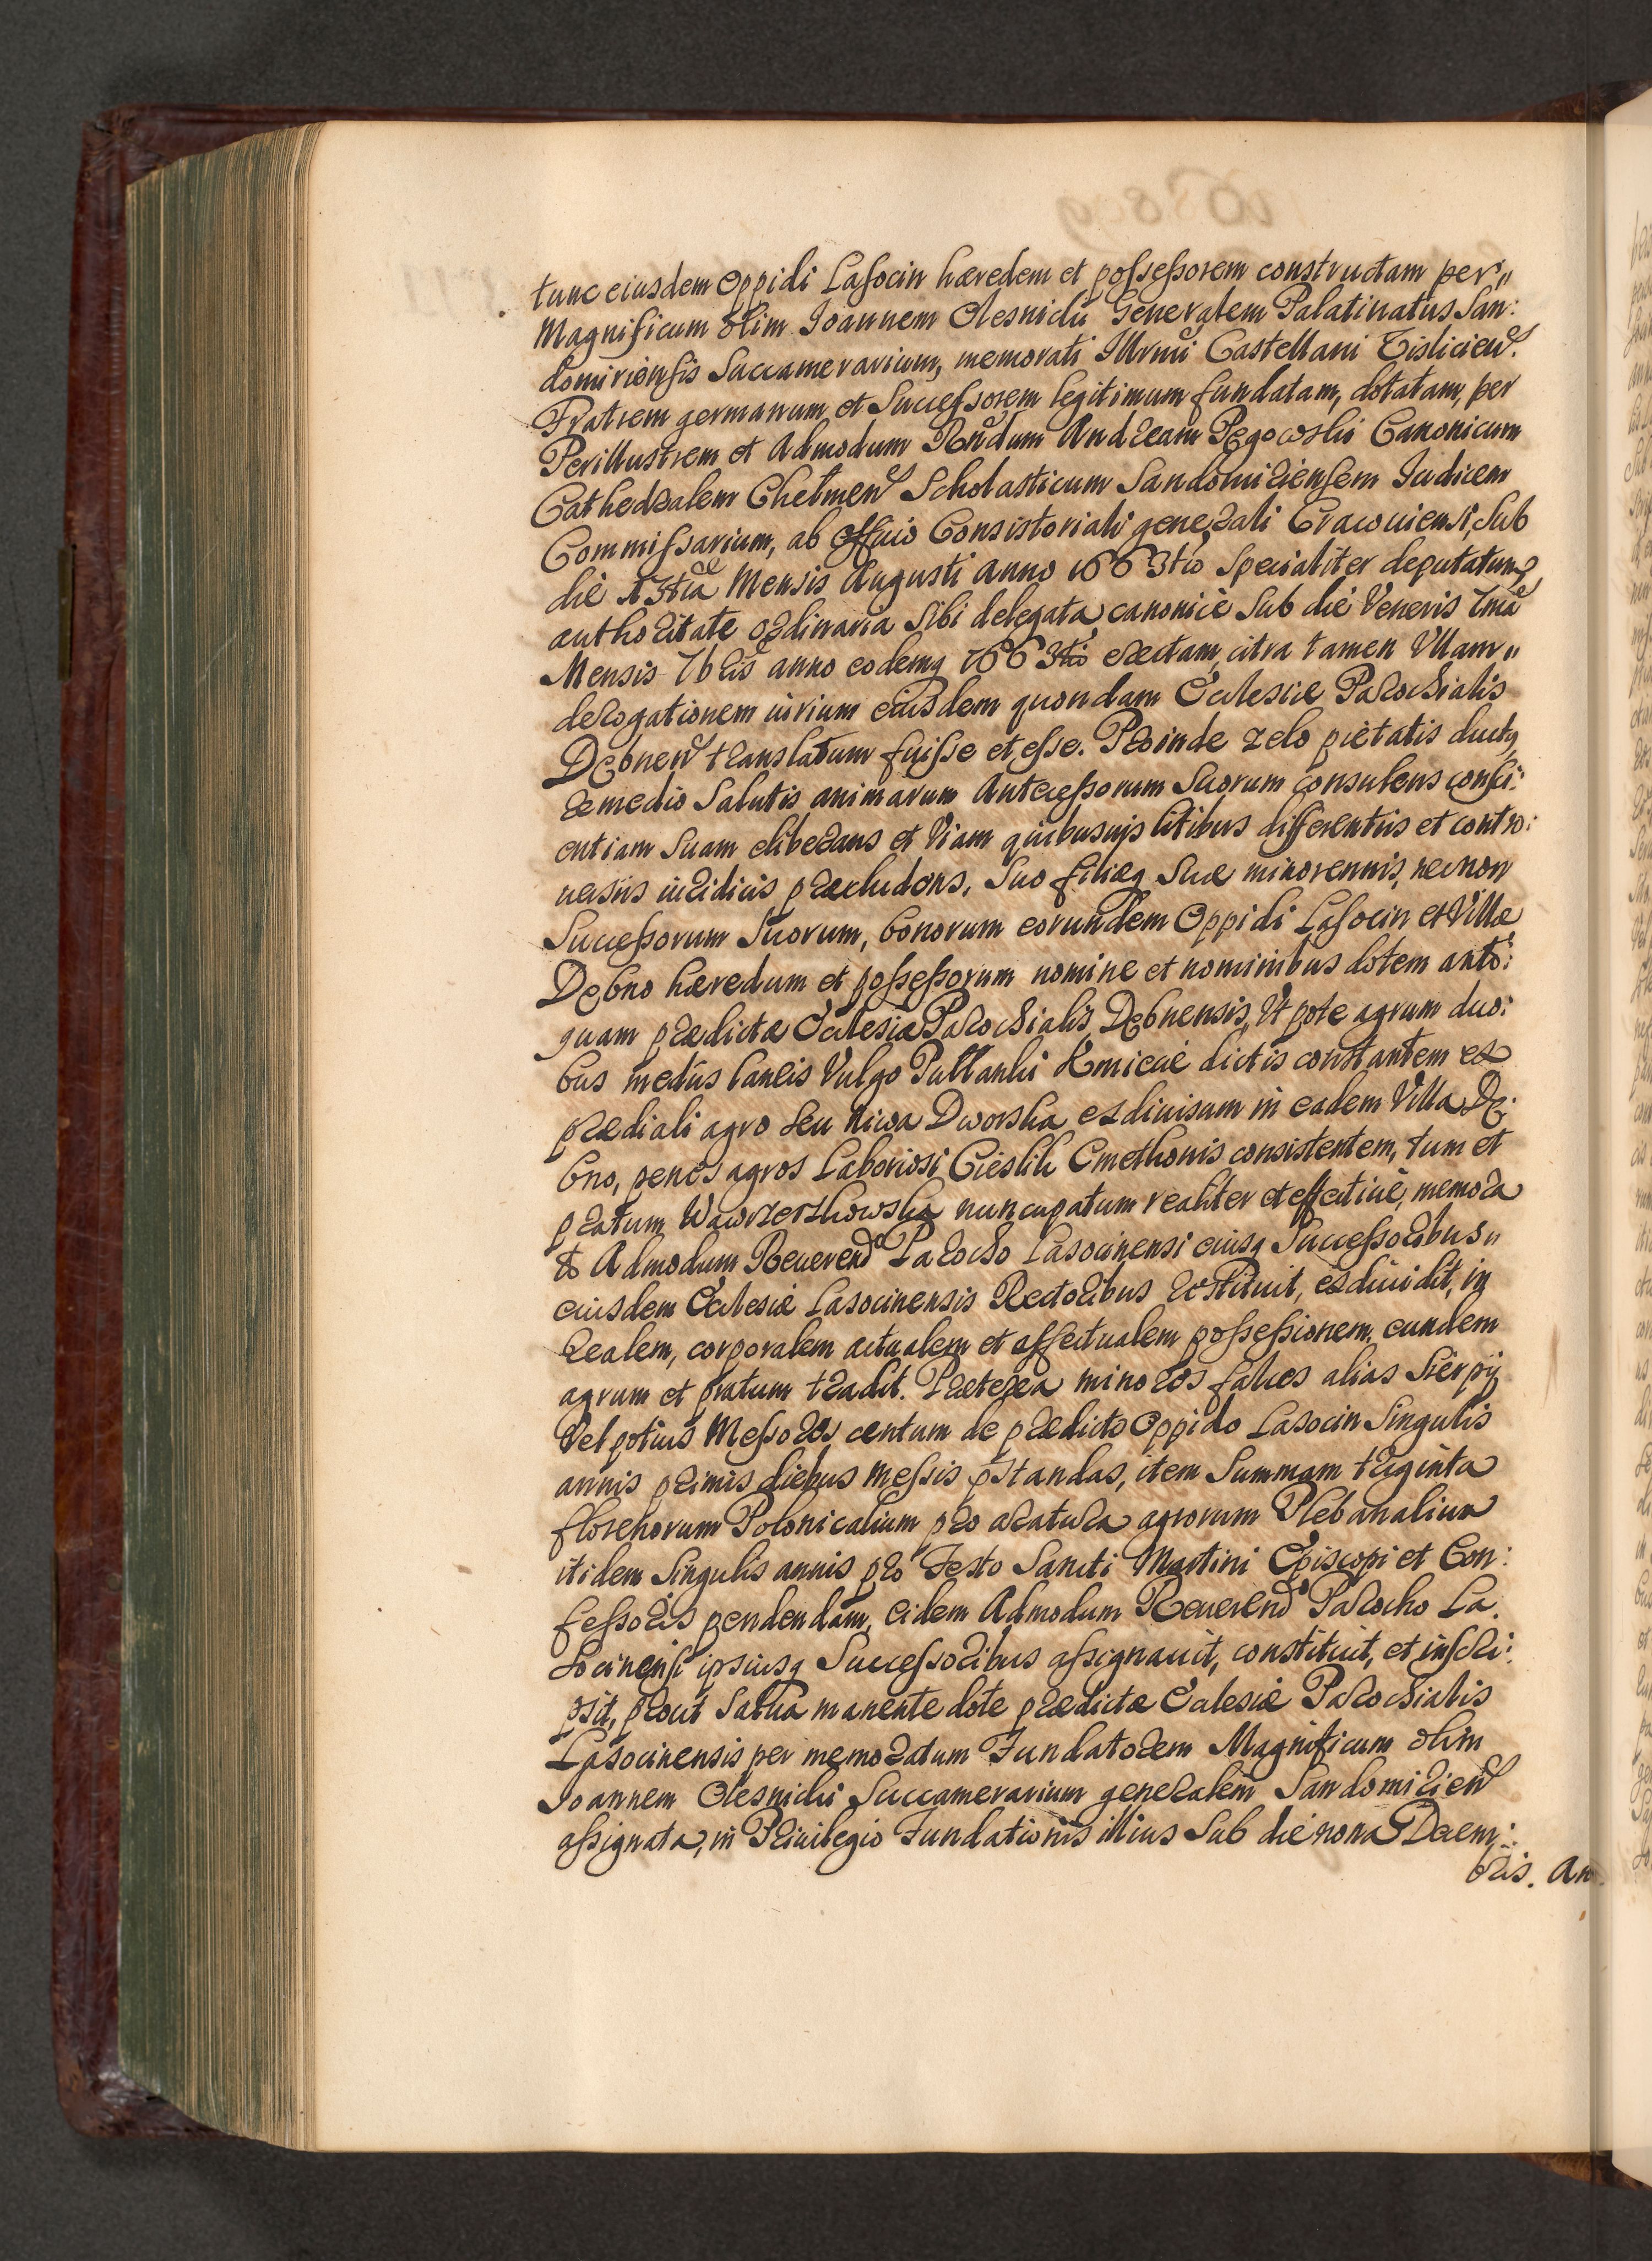 tunc eiusdem Oppidi Lasocin hæredem et possessorem constructam per„
Magnificum olim Joannem Olesnicki Generalem Palatinatus San:
domiriensis Succamerarium, memorati Illrmi Castellani Visliciens.
Fratrem germanum et Successorem legitimum fundatam, dotatam, per
Perillustrem et Admodum Rndum Andream Pęgowski Canonicum
Cathedralem Chelmens Scholasticum Sandomiriensem Judicem
Commissarium, ab Officio Consistoriali generali Cracoviensi, Sub
die 13tia Mensis Augusti anno 1663tio Specialiter deputatum,
authoritate ordinaria sibi delegata, canonicè Sub die Veneris 7ma
Mensis 7bris anno eodemq 1663tio erectam, citra tamen Ullam„
derogationem iurium eiusdem quondam Ecclesiæ Parochialis
Dębnens translatum fuisse et esse. Proinde zelo pietatis ductq
remedio Salutis animarum Antecessorum Suorum consulens consci:
entiam Suam eliberans et Viam quibusuis litibus differentiis et contro:
uersiis iuridicis præcludens, Suo filiæq Suæ minorennis, necnon
Successorum Suorum, bonorum eorundem Oppidi Lasocin et Villæ
Dębno hæredum et possessorum nomine et nominibus dotem anti:
quam prædictæ Ecclesiæ Parochialis Dębnensis, Ut pote agrum duo:
bus mediis laneis Vulgo Pułłanki Kmiecie dictis constantem ex
prædiali agro seu Niwa Dworska exdiuisum in eadem Villa Dę:
bno, penes agros Laboriosi Cieslik Cmethonis consistentem, tum et
pratum Wawrzerzkowska nuncupatum realiter et effectiuè, memora
to Admodum Reuerendo Parocho Lasocinensi eiusq Successoribus„
eiusdem Ecclesiæ Lasocinensis Rectoribus restituit, exdiuidit, in
realem, corporalem actualem et effectualem possessionem, eundem
agrum et pratum tradit. Præterea minores falces alias Sierpy
Vel potius Messores centum de prædicto Oppido Lasocin Singulis
annis primis diebus Messis pstandas, item Summam triginta
florenorum Polonicalium pro aratura agrorum Plebanalium
itidem Singulis annis pro Festo Sancti Martini Episcopi et Con:
fessoris pendendam, eidem Admodum Reuerendo Parocho La:
socinensi ipsiusq Successoribus assignauit, constituit, et inscri:
psit, prout Salua manente dote prædictæ Ecclesiæ Parochialis
Lasocinensis per memoratum Fundatorem Magnificum olim
Joannem Olesnicki Succamerarium generalem Sandomiriens
assignata, in Priuilegio Fundationis illius Sub die nona Decem:
bris. An